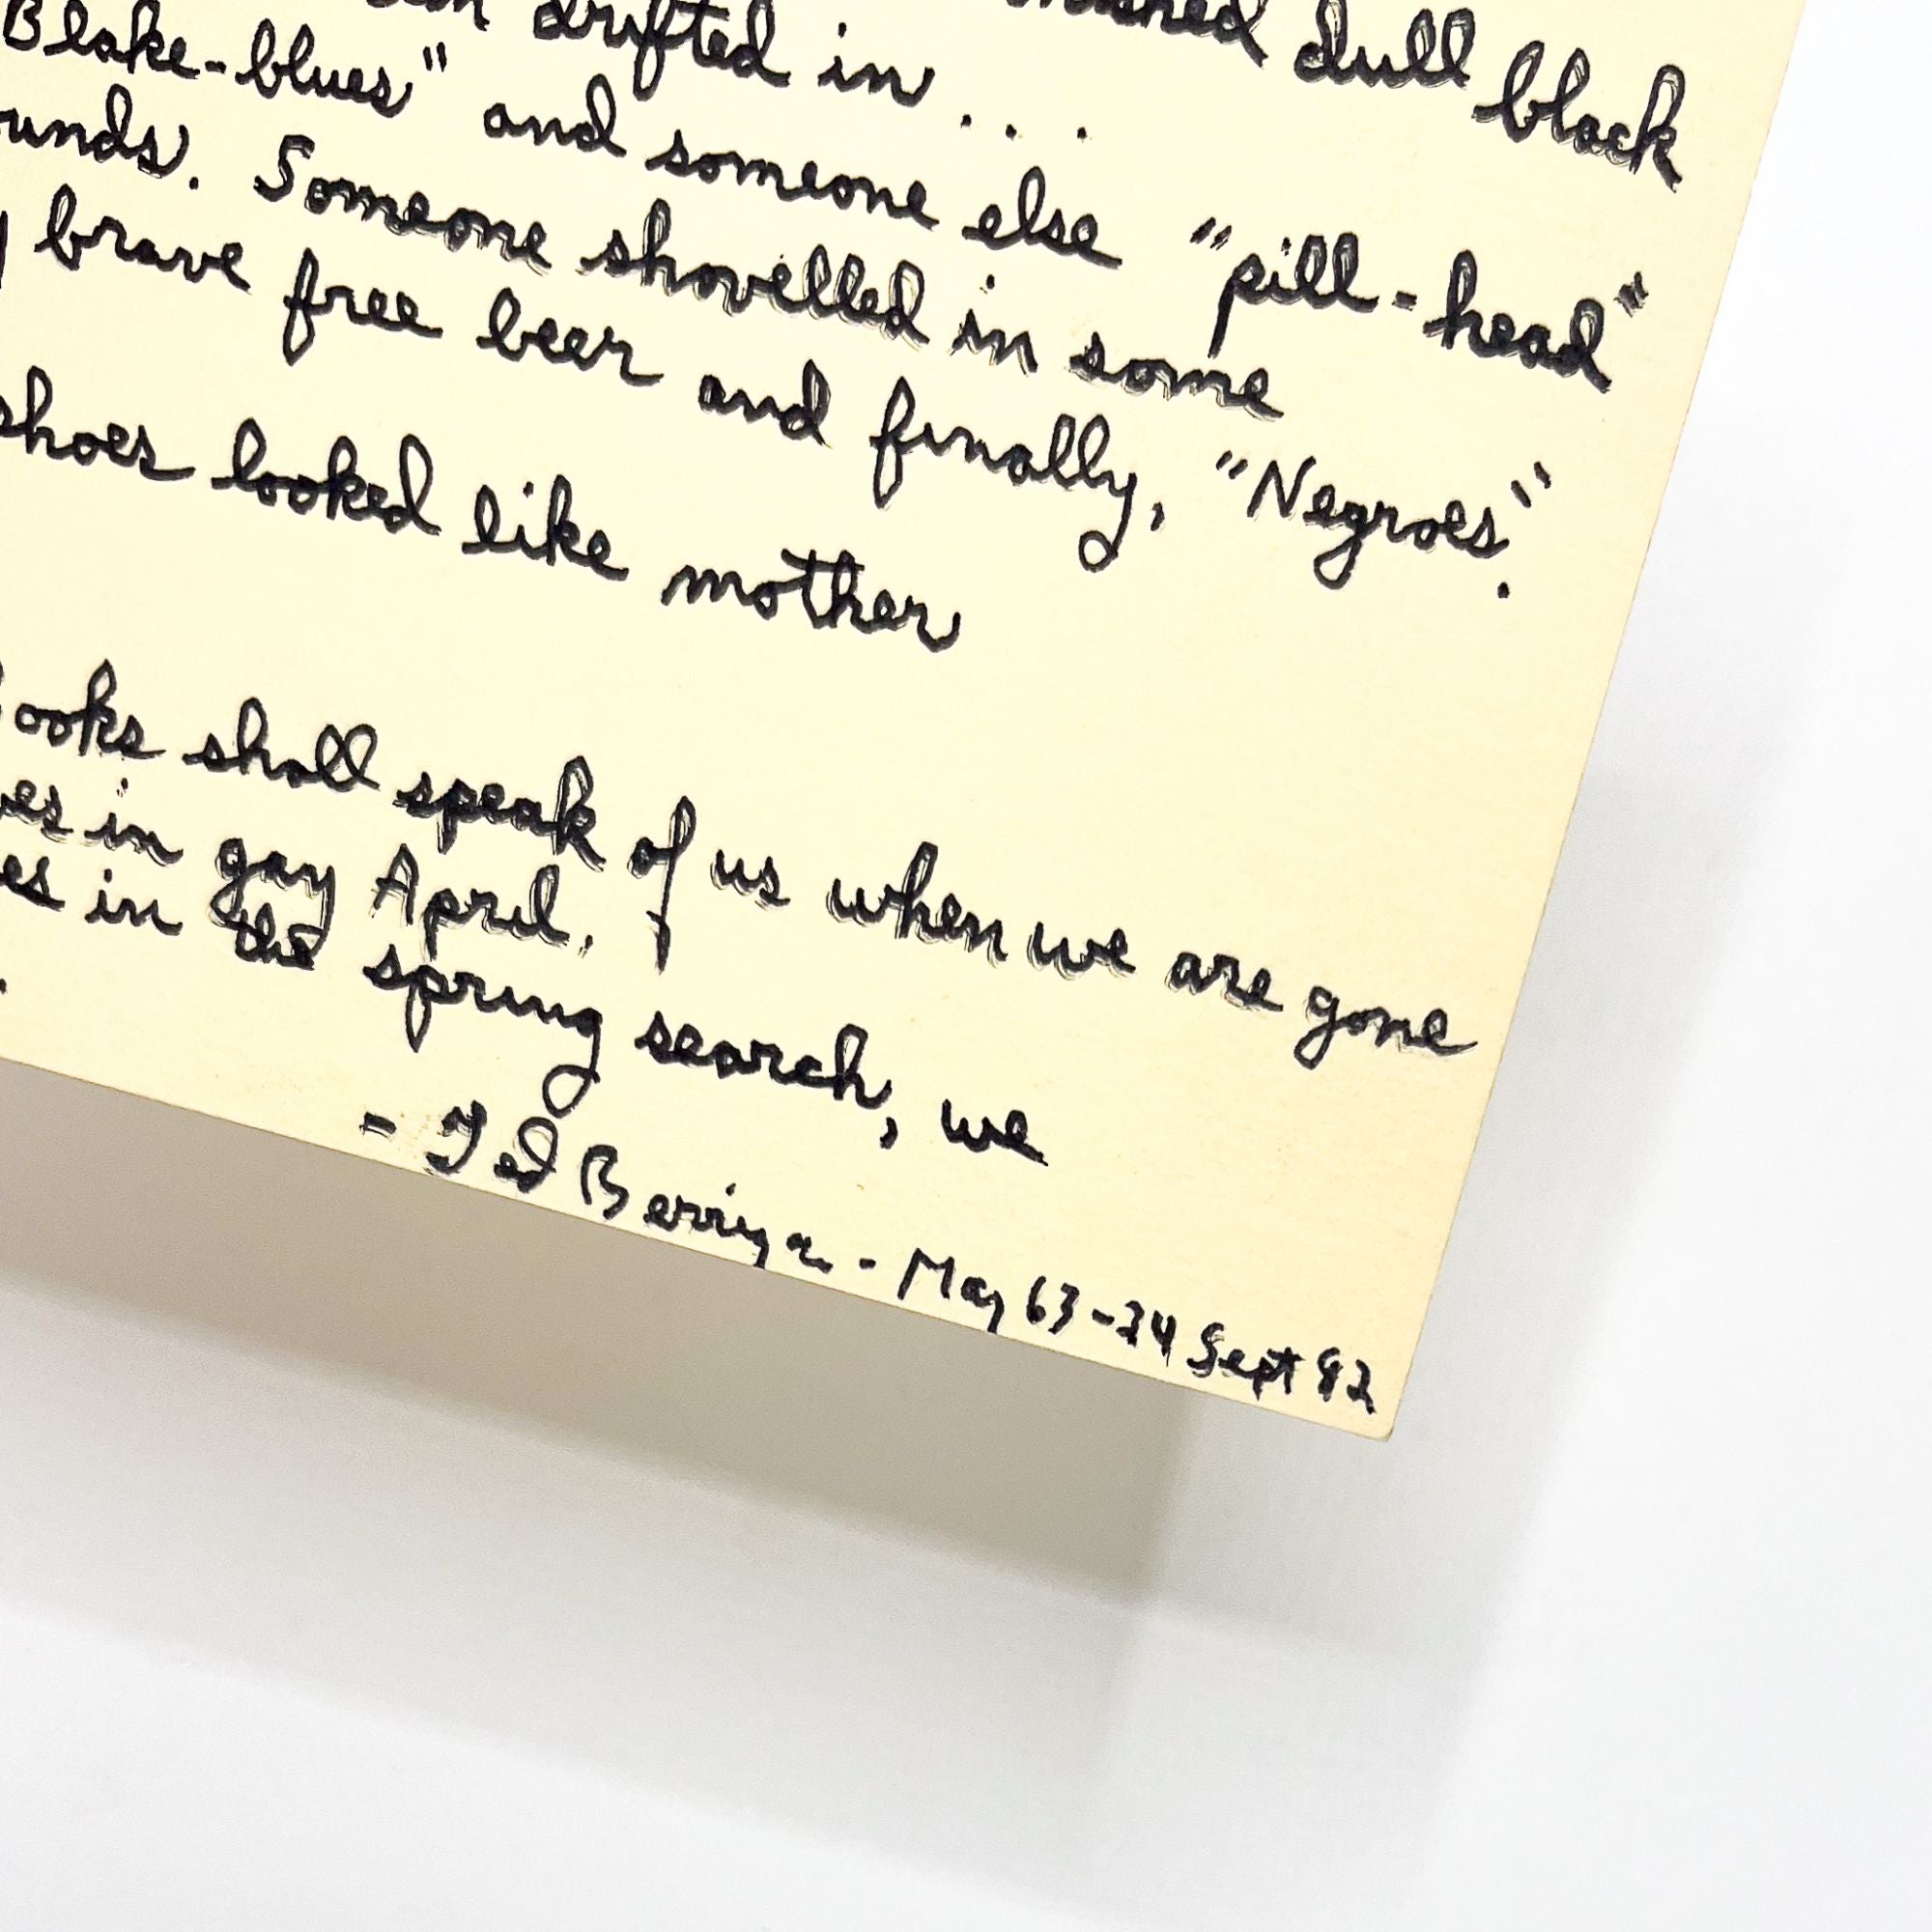 ished dull black
drifted in . . .
Blake-blues" and someone else "pill-head"
unds. Someone shovelled in some
brave free beer and finally, "Negroes."
shoes looked like mother
ooks shall speak of us when we are gone
es in gay April.
es in the spring search, we
- Ted Berrigan - May 63 - 24 Sept 82